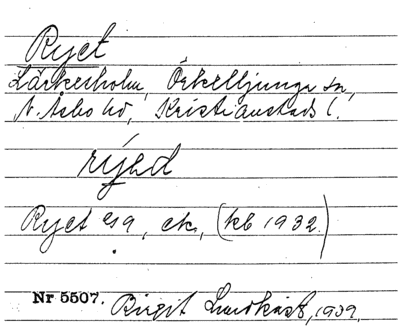 Ryet
Läckesholm, Örkelljunga sn,
N. Åsbo hd, Kristianstads l.
rýed
Ryet eng, ek, (kb 1932.)
Nr 5507. Birgit Lundkvist, 1939.